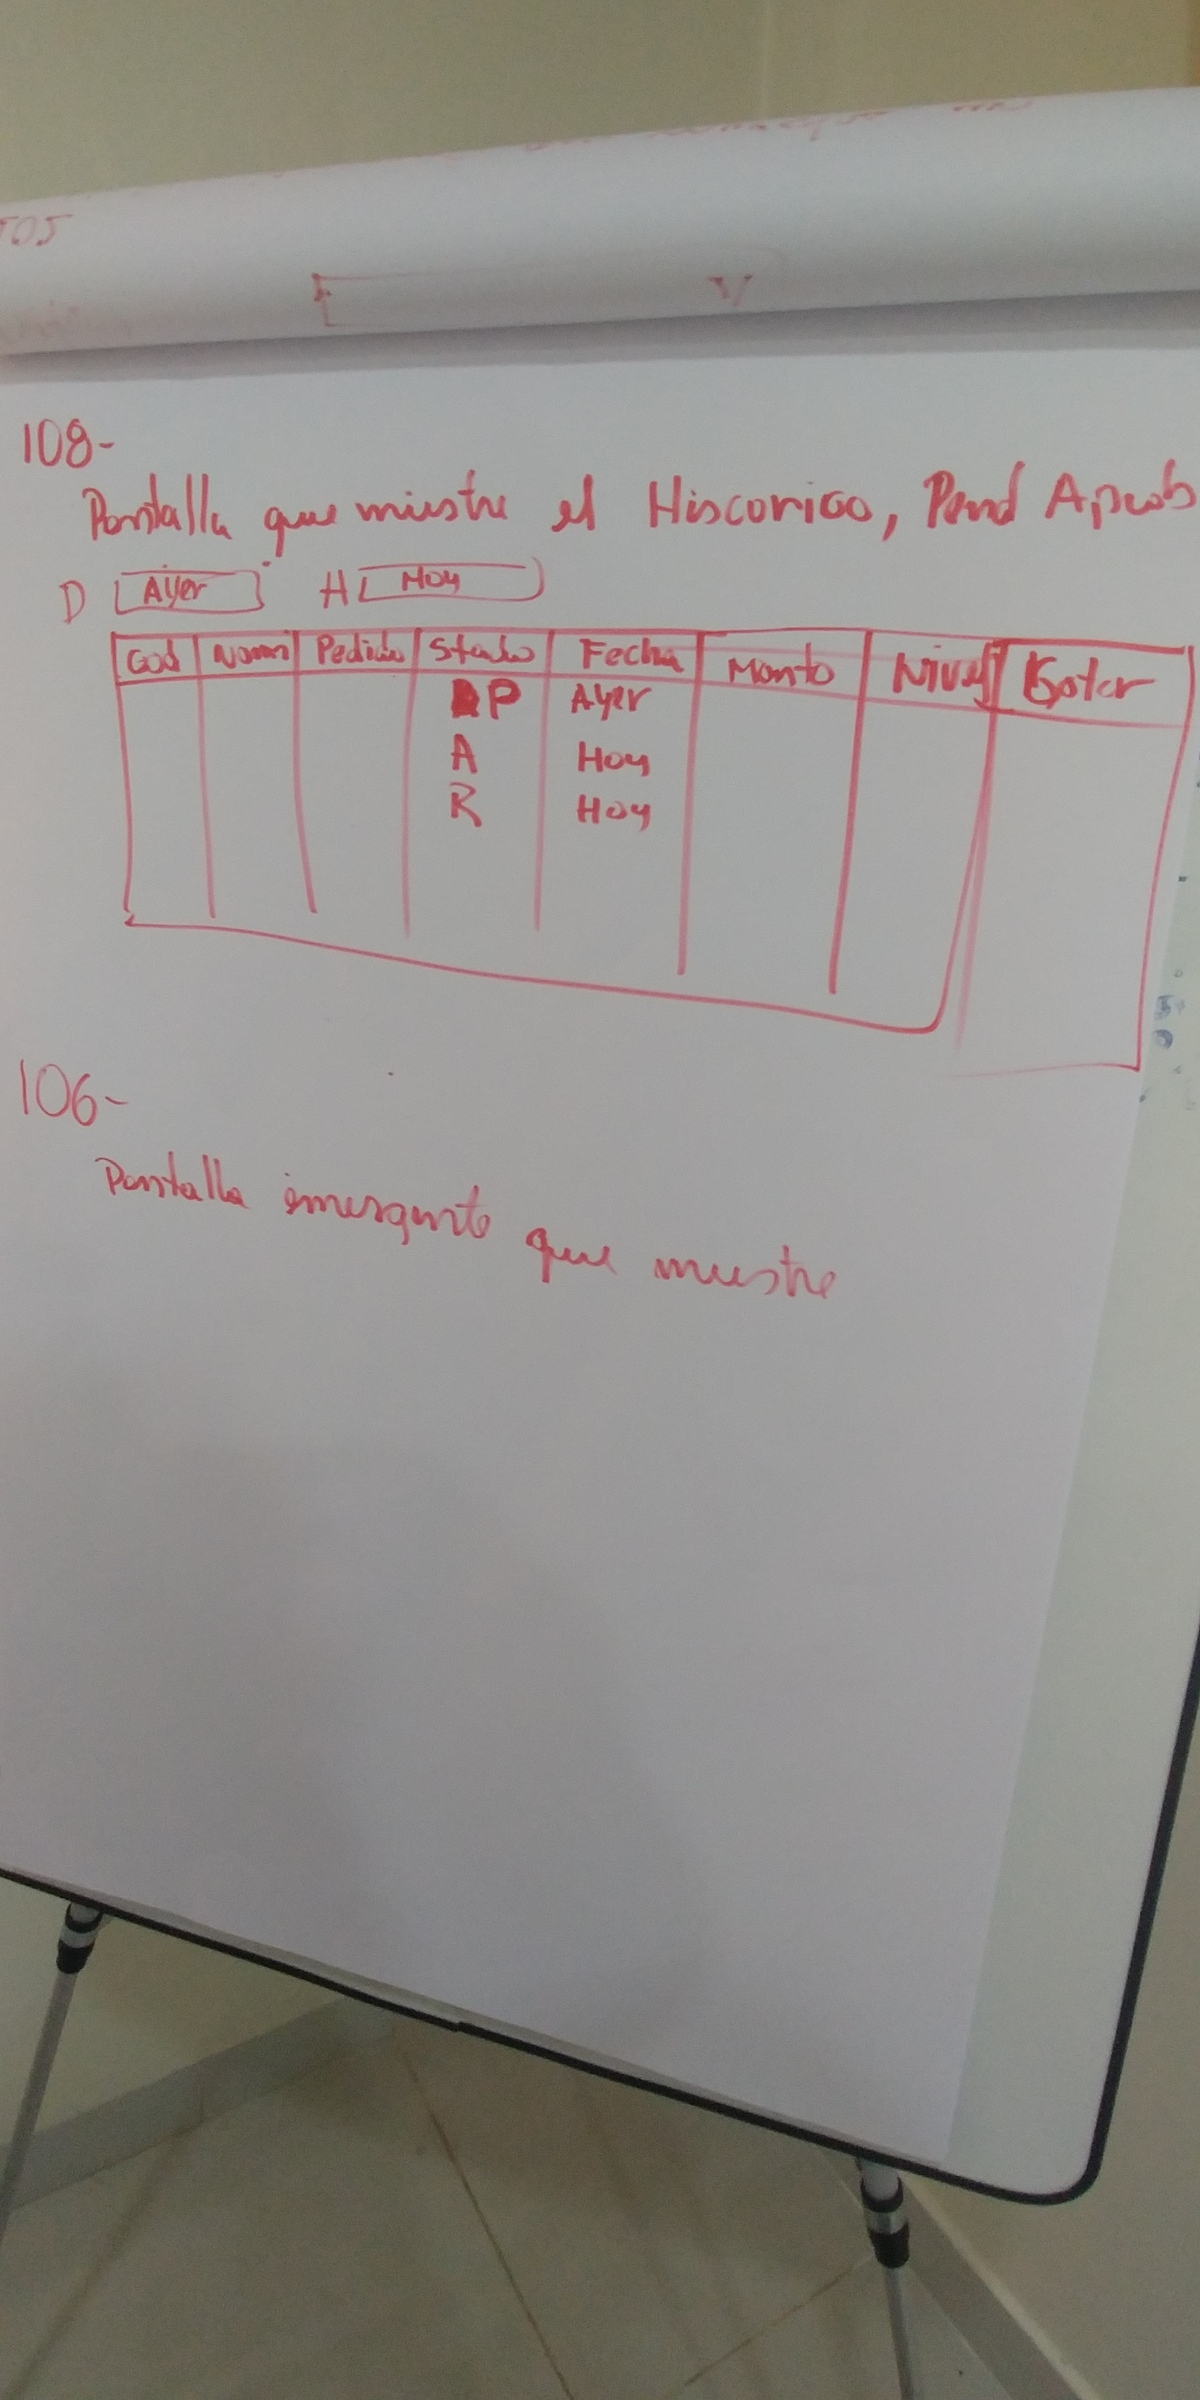 105
108-
Pantalla que muestre el Hiscorico, Pend Aprob
D Ayer H Hoy
Cod Nom Pedido Stado Fecha Monto Nivel
P Ayer
A Hoy
R Hoy
106-
Pantalla emergente que muestre